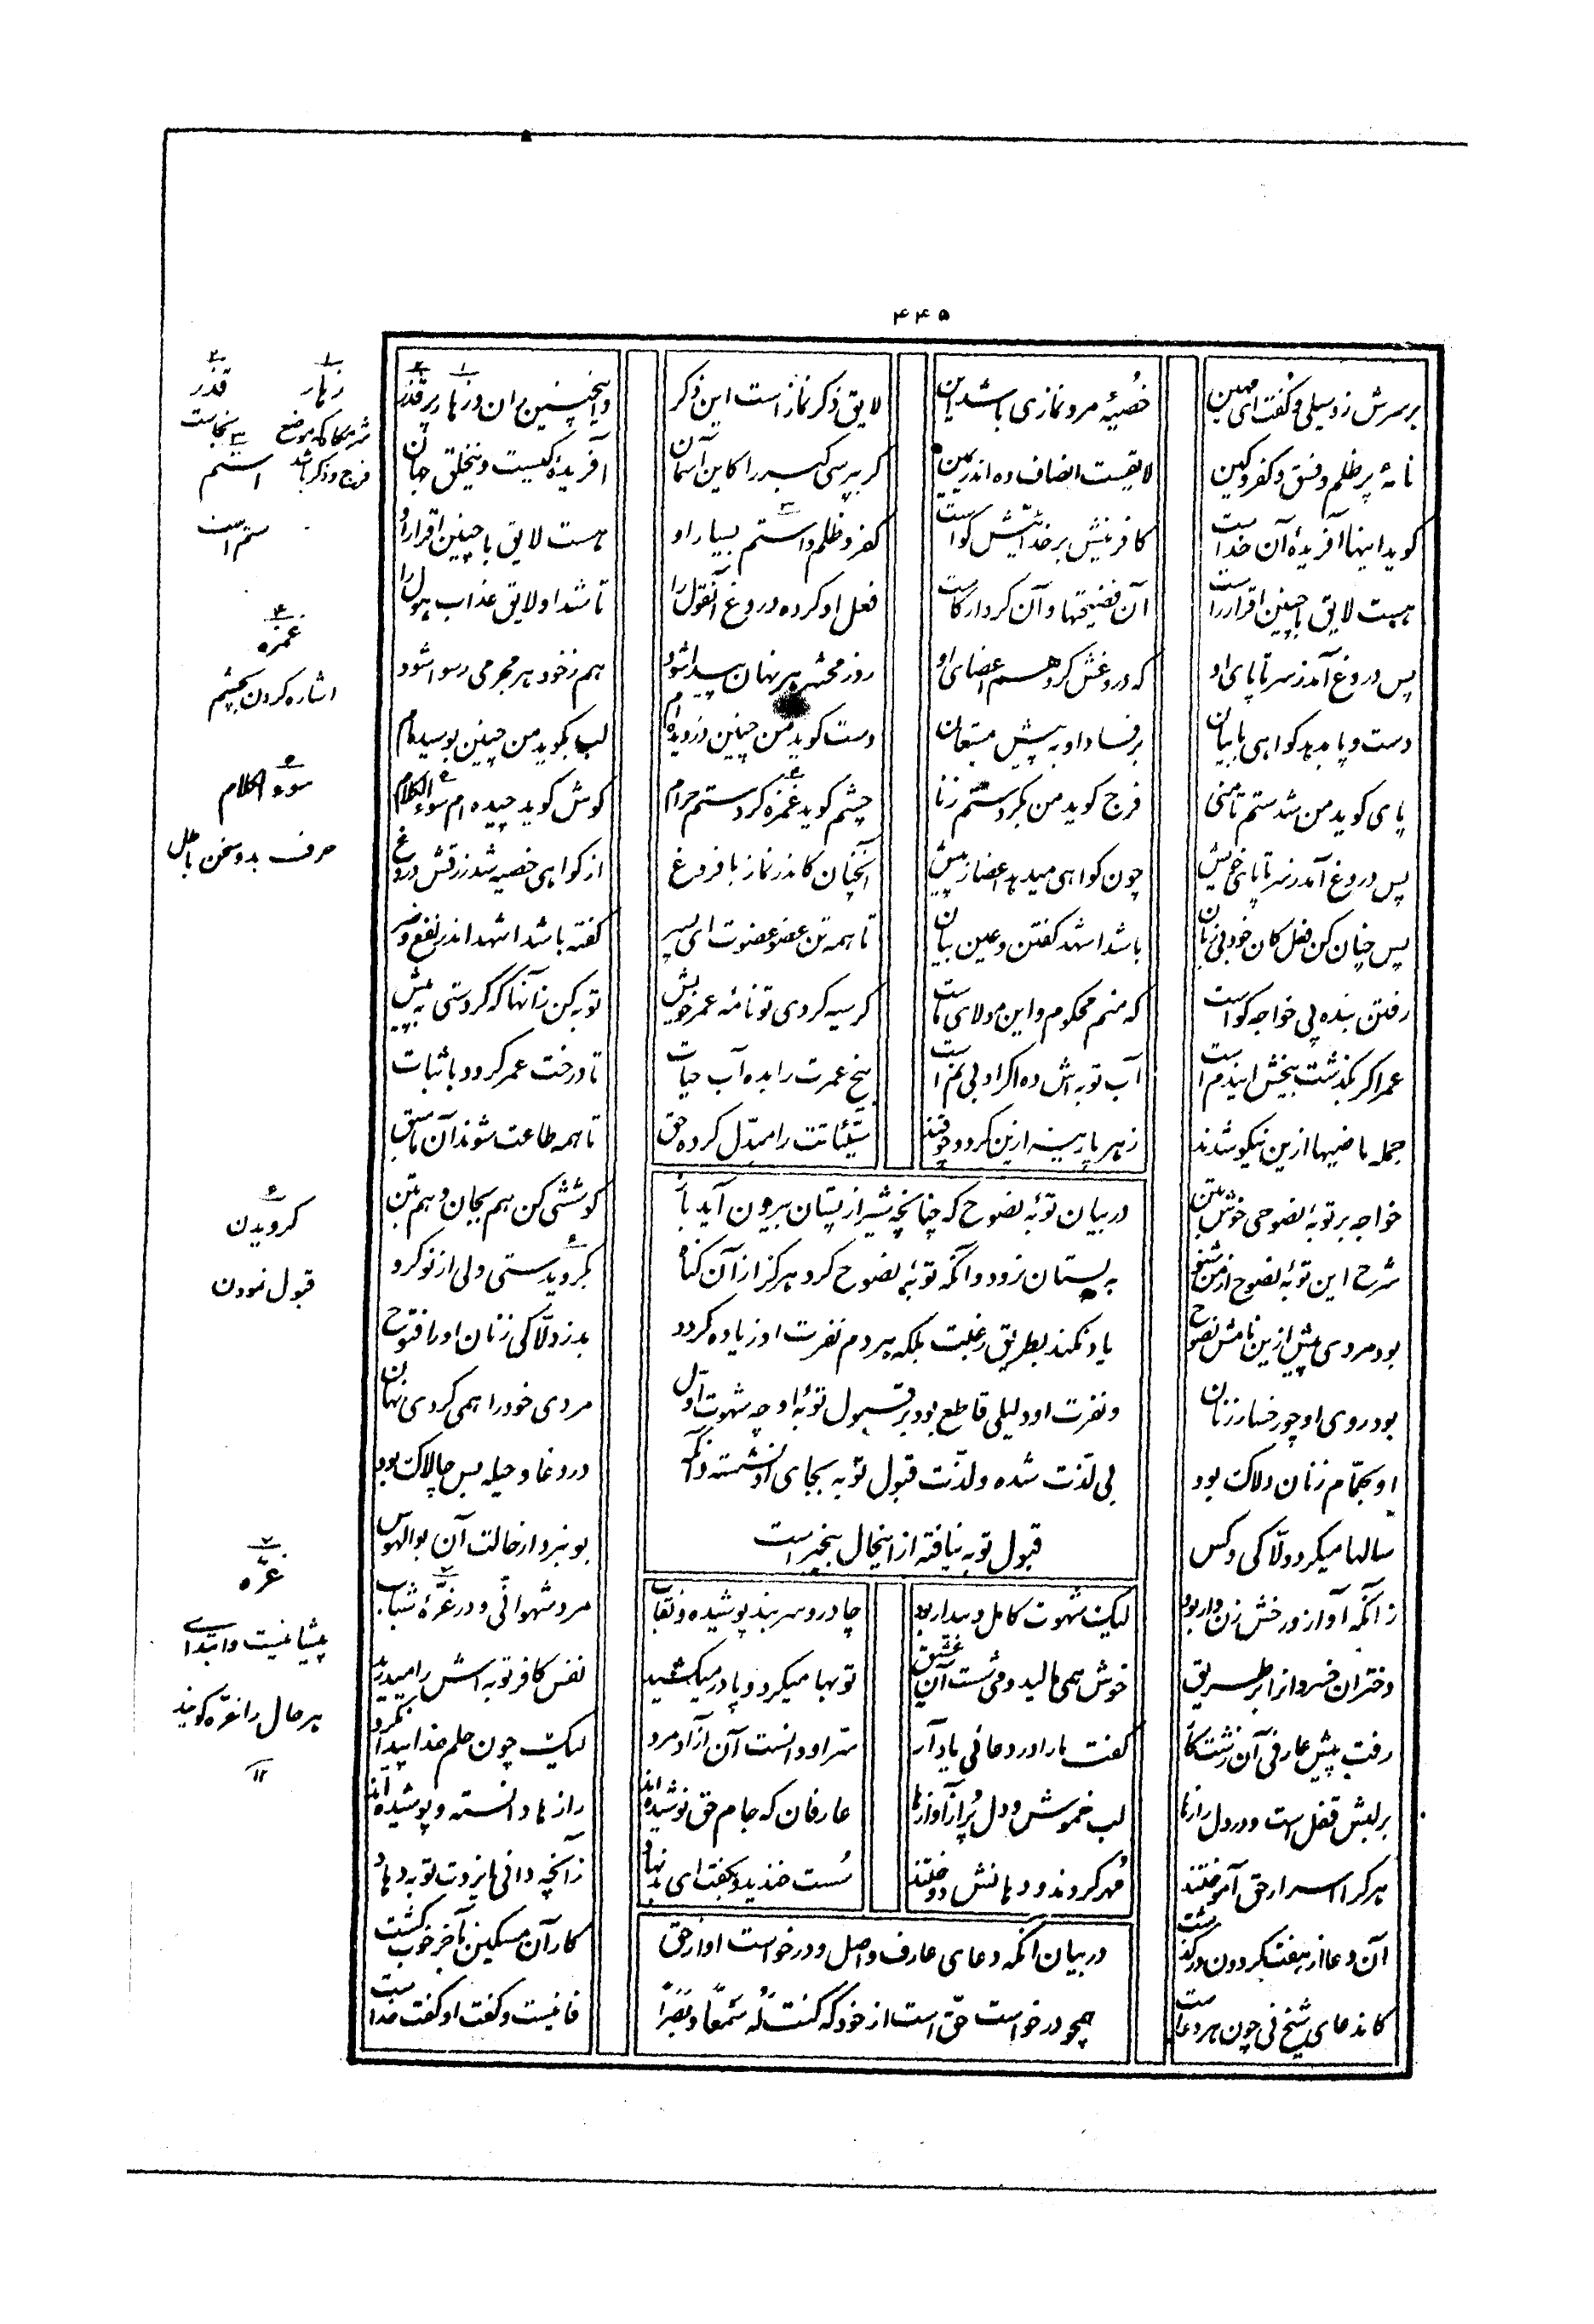 ۴۴۵
برسرش زد سیلی و گفت ای مهین خصیهٔ مرد نمازی باشد این لایق ذکر نماز است این ذکر واینچنین ران و زهار پر قذر
نامهٔ پر ظلم و فسق و کفر و کین لایقست انصاف ده اندر یمین گر بپرسی گبر را کاین آسمان آفریدهٔ کیست وینخلق جهان
گوید اینها آفریدهٔ آن خداست کافرینش بر خدائیش گواست کفر و ظلم و استم بسیار او هست لایق با چنین اقرار او
هست لایق با چنین اقرار راست آن فضیحتها و آن کردار کاست فعل او کرده دروغ آنقول را تا شد او لایق عذاب هول را
پس دروغ آمد ز سر تا پای او که دروغش کرد هم اعضای او روز محشر هر نهان پیدا شود هم ز خود هر مجرمی رسوا شود
دست و پا بدهد گواهی با بیان بر فساد او به پیش مستعان دست گوید من چنین دزدیده‌ام لب بگوید من چنین بوسیده‌ام
پای گوید من شدستم تا منی فرج گوید من بکردستم زنا چشم گوید غمزه کردستم حرام گوش گوید چیده ام سوء الکلام
پس دروغ آمد ز سر تا پای خویش چون گواهی میدهد اعضا ز پیش آنچنان کاندر نماز با فروغ از گواهی خصیه شد زرقش دروغ
پس چنان کن فعل کان خود بی زبان باشد اشهد گفتن و عین بیان تا همه تن عضو عضوت ای پسر گفته باشد اشهد اندر نفع و ضر
رفتن بنده پی خواجه گواست که منم محکوم و این مولای ماست گر سیه کردی تو نامهٔ عمر خویش توبه کن زآنها که کردستی به پیش
عمر اگر بگذشت بیخش ایندم است آب توبه‌اش ده اگر او بی نم است بیخ عمرت را بده آب حیات تا درخت عمر گردد با ثبات
جمله ماضیها ازین نیکو شدند زهر پارینه ازین گردد چو قند سیّئاتت را مبدّل کرده حق تا همه طاعت شوند آن ما سبق
خواجه بر توبهٔ نصوحی خوش بتن کوششی کن هم بجان و هم بتن
شرح این توبهٔ نصوح از من شنو بگرویدستی ولی از نو گرو
در بیان توبهٔ نصوح که چنانچه شیر از پستان بیرون آید باز
به پستان نرود و آنکه توبهٔ نصوح کرد هرگز از آن گناه
یاد نکند بطریق رغبت بلکه هر دم نفرت او زیاده گردد
و نفرت او دلیلی قاطع بود بر قبول توبهٔ او چه شهوت اول
بی لذّت شده و لذّت قبول توبه بجای او نشسته و آنکه
قبول توبه نیافته از اینحال بیخبر است
بود مردی پیش ازین نامش نصوح بد ز دلّاکی زنان او را فتوح
بود روی او چو رخسار زنان مردی خود را همی کردی نهان
او بحمّام زنان دلاک بود در دغا و حیله بس چالاک بود
سالها میکرد دلّاکی و کس بو نبرد از حالت آن بوالهوس
زآنکه آواز و رخش زن وار بود لیک شهوت کامل و بیدار بود چادر و سربند پوشیده و نقاب مرد شهوانی و در غرّهٔ شباب
دختران خسروانرا بر طریق خوش همی مالید و می شست آن عشیق توبها میکرد و پا در میکشید نفس کافر توبه اش را میدرید
رفت پیش عارفی آن زشت کار گفت ما را در دعائی یاد آر سرّ او دانست آن آزاد مرد لیک چون حلم خدا پیدا نکرد
بر لبش قفل است و در دل رازها لب خموش و دل پُر از آوازها عارفان که جام حق نوشیده‌اند رازها دانسته و پوشیده‌اند
هر که را اسرار حق آموختند مُهر کردند و دهانش دوختند سُست خندید و بگفت ای بد نهاد زآنچه دانی ایزدت توبه دهاد
آن دعا از هفت گردون در گذشت کار آن مسکین بآخر خوب گشت
کان دعای شیخ نی چون هر دعاست فانیست و گفت او گفت خداست
در بیان آنکه دعای عارف واصل و درخواست او از حق
همچو درخواست حق است از خود که کنت له سَمعاً و بَصَراً
۱ زهار
شرمگاه که موضع
فرج و ذکر باشد
۲ قذر
نجاست
۳ استم
ستم است
۴ غمزه
اشاره کردن بچشم
۵ سوء الکلام
حرف بد و سخن باطل
۶ گرویدن
قبول نمودن
۷ غرّه
پیشانیست و ابتدای
هر حال را غرّه گویند
۱۲